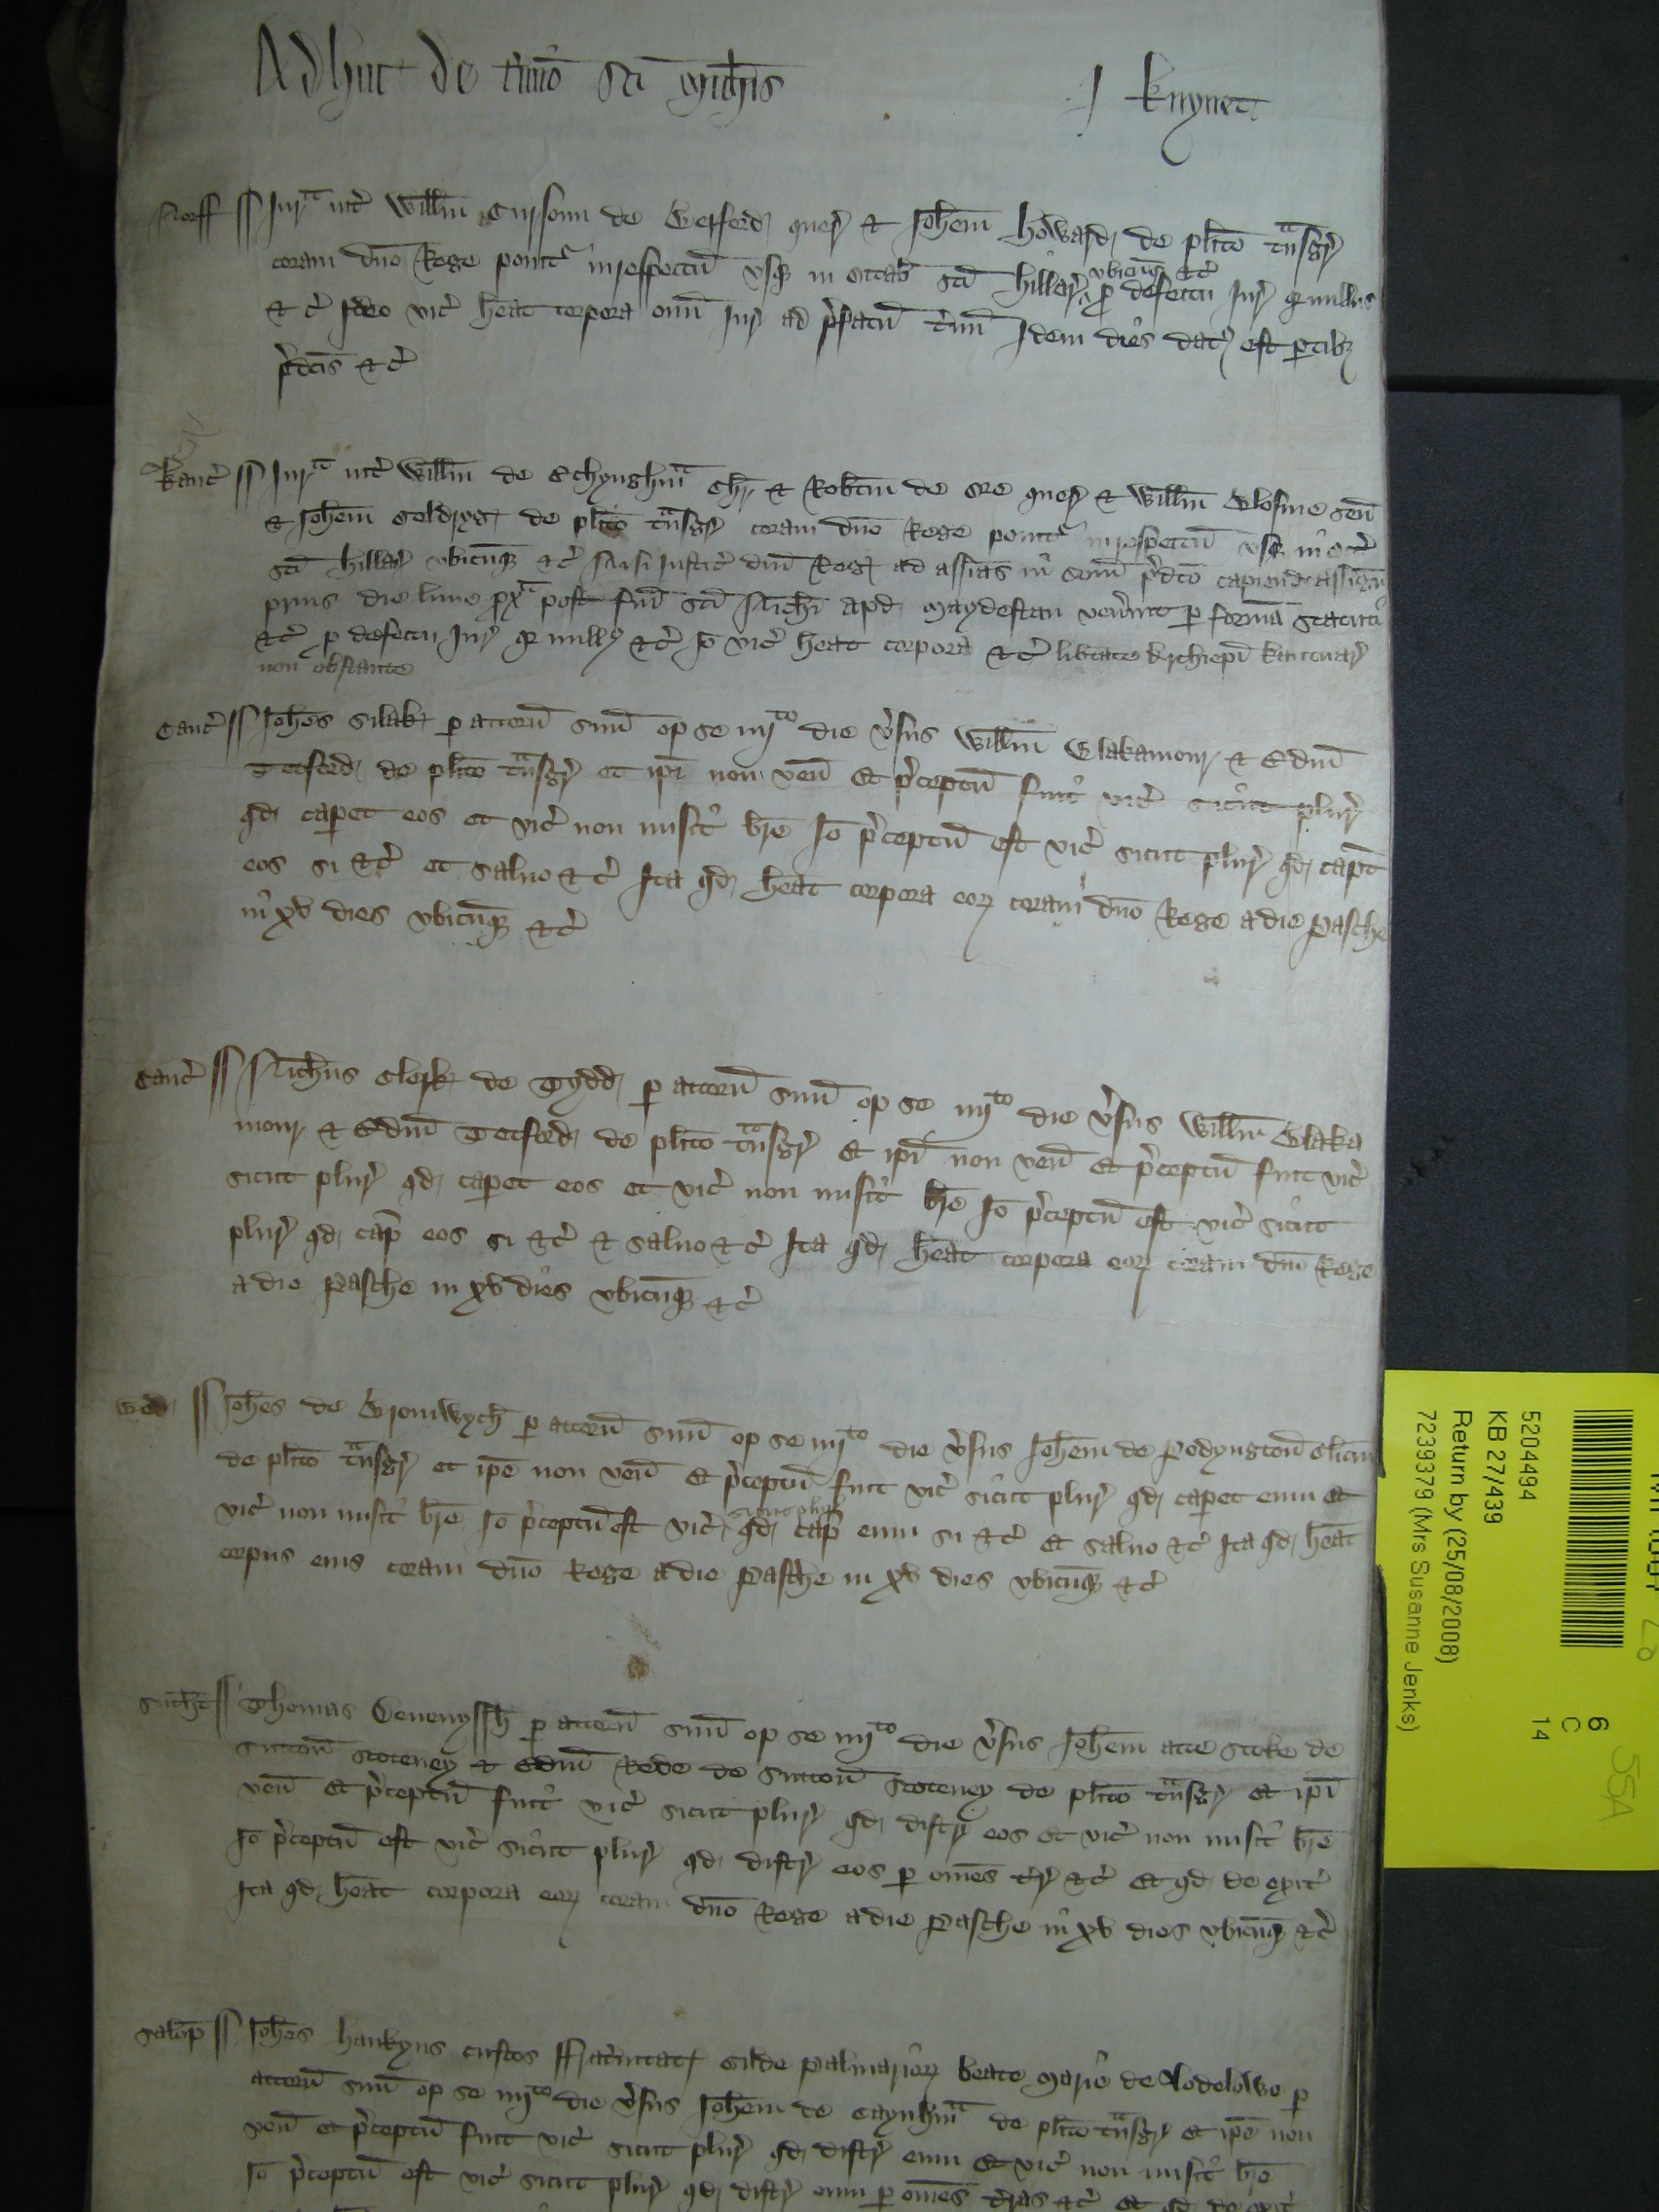 Adhuc de t'mio sci Michis J Knyvet
Norff Jur^a int' Willm Cursoun de Befford quer' & Johem Howard de plito t^ansgr'
coram dno Rege ponit^r in respectu usq3 in octab sci Hillar' ubicuq3 &c' p defectu jur' q' nullus
&c' Ideo vic' heat corpora omi jur' ad p'fatu t'mu Idem dies dat' est ptib3
p'dcis &c'
Kanc' Jur^a int' Willm de Echynghm^a Chr' & Robtm de Ore quer' & Willm Glosme sen
& Johem Seldryg de plito t^ansgr' coram dno Rege ponit^r in respectu usq3 in oct'
sci Hillar' ubicuq3 &c' Nisi Justic' dni Reg' ad assias in com p'dco capiend assign
prius die lune px^a post fm sci Nichi apd Maydestan ven'int p forma statuti
&c' p defectu jur' q' null' &c' Io vic' heat corpora &c' libtate Archiepi Kantuar'
non obstante
Cant' Johes Silak p attorn suu op se iiij^to die v'sus Willm Blakamour & Edm
Tetford de plito t^ansgr' et ipi non ven Et p'ceptu fuit vic' sicut plur'
qd caperet eos et vic' non misit bre Io p'ceptu est vic' sicut plur' qd capet
eos si &c' et salvo &c' Ita qd heat corpora eor' coram dno Rege a die Pasche
in xv dies ubicuq3 &c'
Cant' Nichus Clerk de Tydd p attorn suu op se iiij^to die v'sus Willm Blaka
mour & Edm Tetford de plito t^ansgr' Et ipi non ven Et p'ceptu fuit vic'
sicut plur' qd caperet eos et vic' non misit bre Io p'ceptu est vic' sicut
plur' qd cap' eos si &c' & salvo &c' Ita qd heat corpora eor' coram dno Rege
a die Pasche in xv dies ubicuq3 &c'
Johes de Bromwych p attorn suu op se iiij^to die v'sus Johem de Podyngton clicum
de plito t^ansgr' et ipe non ven Et p'ceptu fuit vic' sicut plur' qd caperet eum Et
vic' non misit bre Io p'ceptu est vic' sicut plur' qd cap' eum si &c' Et salvo &c' Ita qd heat
corpus eius coram dno Rege a die Pasche in xv dies ubicuq3 &c'
Sutht Thomas Devenyssh p attorn suu op se iiij^to die v'sus Johem atte Stoke de
Sutton Scoteney & Edm Rede de Sutton Scoteney de plito t^ansgr' Et ipi
ven Et p'ceptu fuit vic' sicut plur' qd distr' eos Et vic' non misit bre
Io p'ceptu est vic' sicut plur' qd distr' eos p omes t'r' &c' Et qd de exit'
Ita qd heat corpora eor' coram dno Rege a die Pasche in xv dies ubicuq3 &c'
Salop Johes Hankyns custos ffrat'nitat' Gilde Palmarior' beate Marie de Lodelowe p
attorn suu op se iiij^to die v'sus Johem de Caynhm^a de plito t^ansgr' et ipe non
ven et p'ceptu fuit vic' sicut plur' qd distr' eum Et vic' non misit bre
Io p'ceptu est vic' sicut plur' qd distr' eum p omes t'ras &c' Et qd de exit'
5204494
KB 27/439
Return by (25/08/2008)
7239379 (Mrs Susanne Jenks)
6
C
14
55A